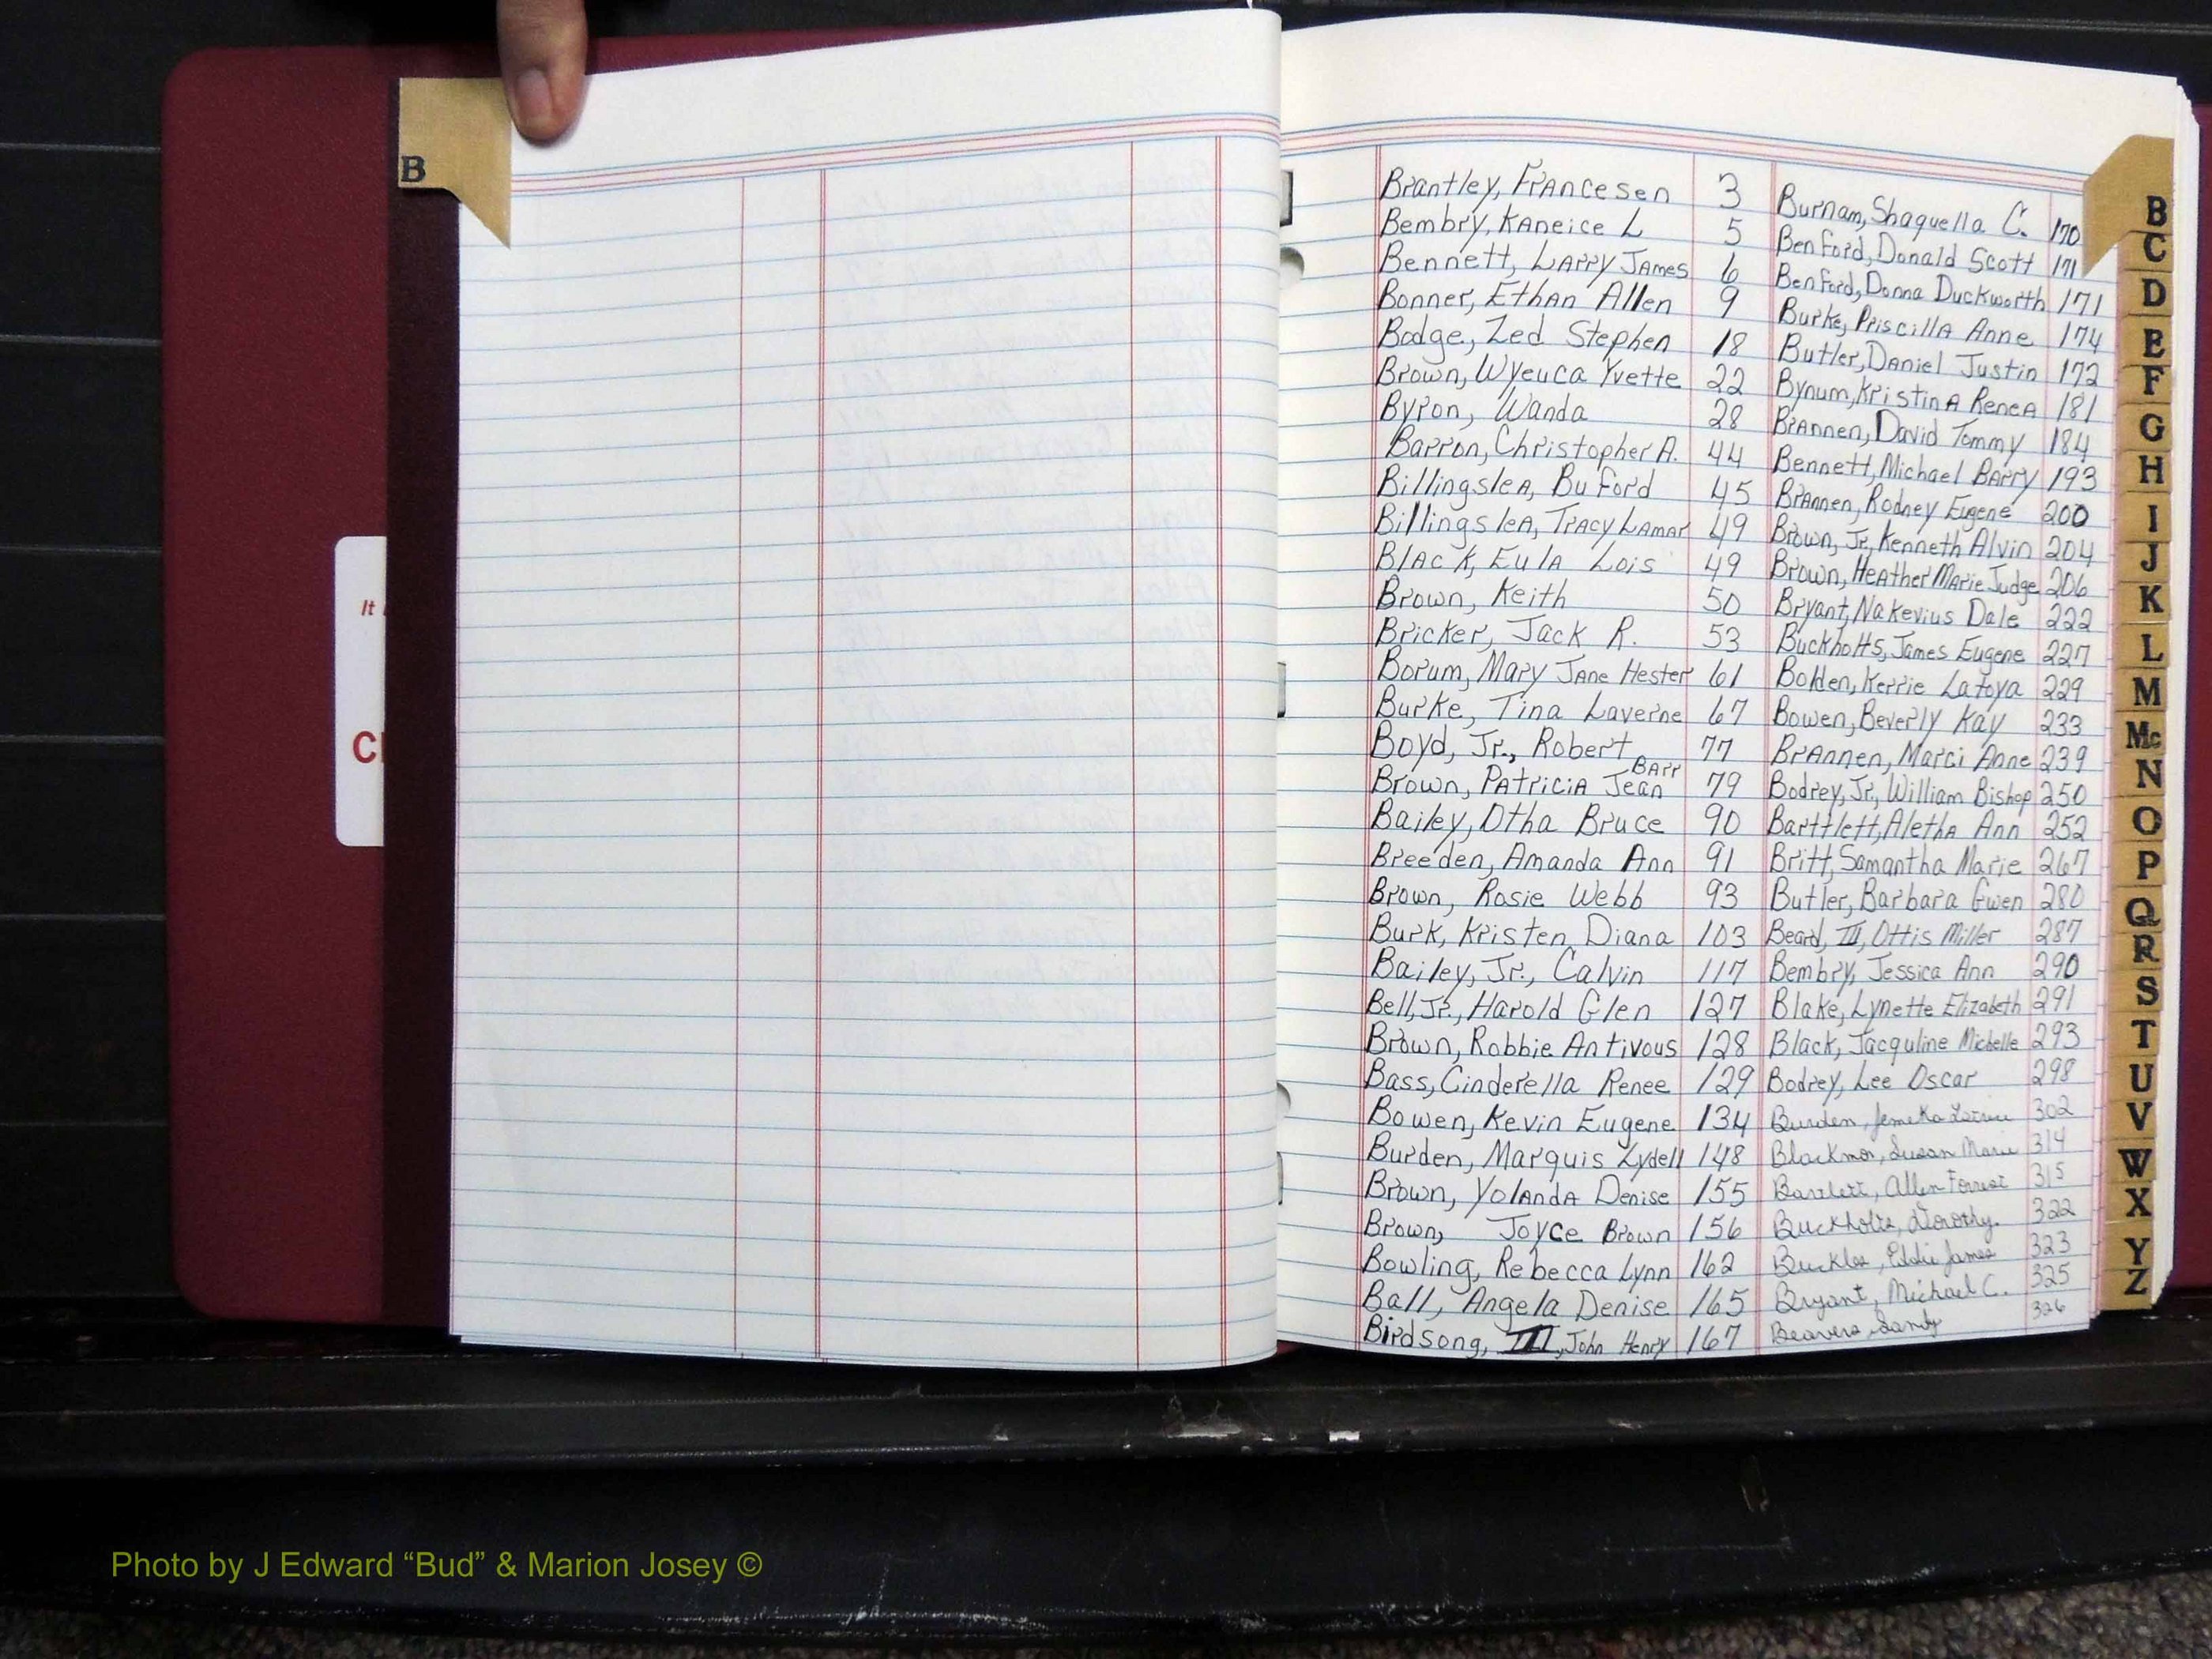 B
It
Cl
Brantley, Francesen 3
Bembry, Kaneice L 5
Bennett, Larry James 6
Bonner, Ethan Allen 9
Bodge, Zed Stephen 18
Brown, Wyeuca Yvette 22
Byron, Wanda 28
Barron, Christopher A. 44
Billingslea, Buford 45
Billingslea, Tracy Lamar 49
Black, Eula Lois 49
Brown, Keith 50
Bricker, Jack R. 53
Borum, Mary Jane Hester 61
Burke, Tina Laverne 67
Boyd, Jr., Robert 77
Barr
Brown, Patricia Jean 79
Bailey, Otha Bruce 90
Breeden, Amanda Ann 91
Brown, Rosie Webb 93
Burk, Kristen Diana 103
Bailey, Jr., Calvin 117
Bell, Jr., Harold Glen 127
Brown, Robbie Antivous 128
Bass, Cinderella Renee 129
Bowen, Kevin Eugene 134
Burden, Marquis Zydell 148
Brown, Yolanda Denise 155
Brown, Joyce Brown 156
Bowling, Rebecca Lynn 162
Ball, Angela Denise 165
Birdsong, III, John Henry 167
Burnam, Shaquella C. 170
Benford, Donald Scott 171
Benford, Donna Duckworth 171
Burke, Priscilla Anne 174
Butler, Daniel Justin 172
Bynum, Kristina Renea 181
Brannen, David Tommy 184
Bennett, Michael Barry 193
Brannen, Rodney Eugene 200
Brown, Jr., Kenneth Alvin 204
Brown, Heather Marie Judge 206
Bryant, Nakevius Dale 222
Buckholts, James Eugene 227
Bolden, Kerrie Latoya 229
Bowen, Beverly Kay 233
Brannen, Marci Anne 239
Bodrey, Jr., William Bishop 250
Barttlett, Aletha Ann 252
Britt, Samantha Marie 267
Butler, Barbara Gwen 280
Beard, III, Ottis Miller 287
Bembry, Jessica Ann 290
Blake, Lynette Elizabeth 291
Black, Jacquline Michelle 293
Bodrey, Lee Oscar 298
Burden, Jemeka 302
Blackmon, Susan Marie 314
Bartlett, Allen Forrest 315
Buckholts, Dorothy 322
Buckles, Eddie James 323
Bryant, Michael C. 325
Beavers, Sandy 326
B
C
D
E
F
G
H
I
J
K
L
M
Mc
N
O
P
Q
R
S
T
U
V
W
X
Y
Z
Photo by J Edward “Bud” & Marion Josey ©